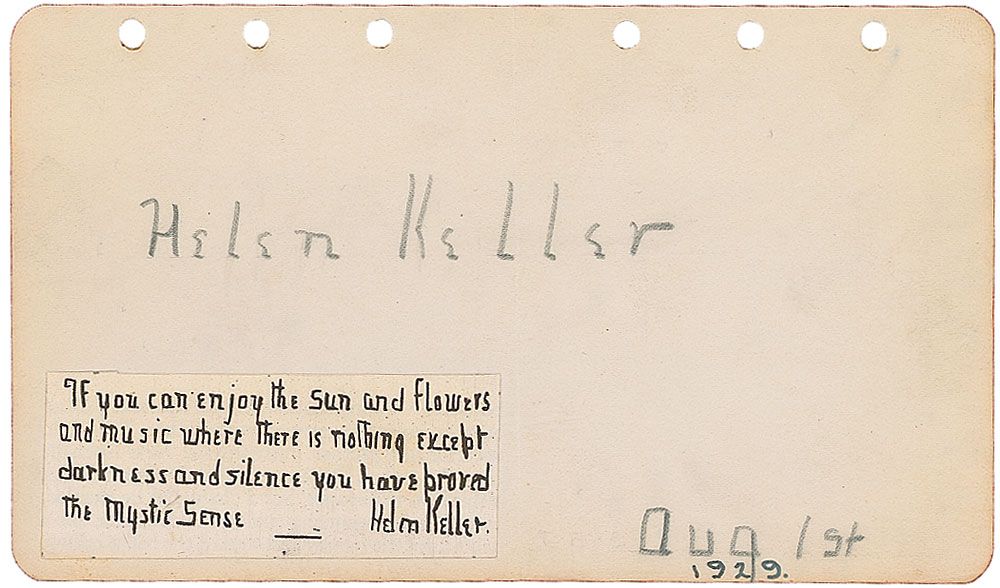 Helen Keller
If you can enjoy the sun and flowers
and music where there is nothing except
darkness and silence you have proved
the Mystic Sense — Helen Keller.
Aug 1st
1929.